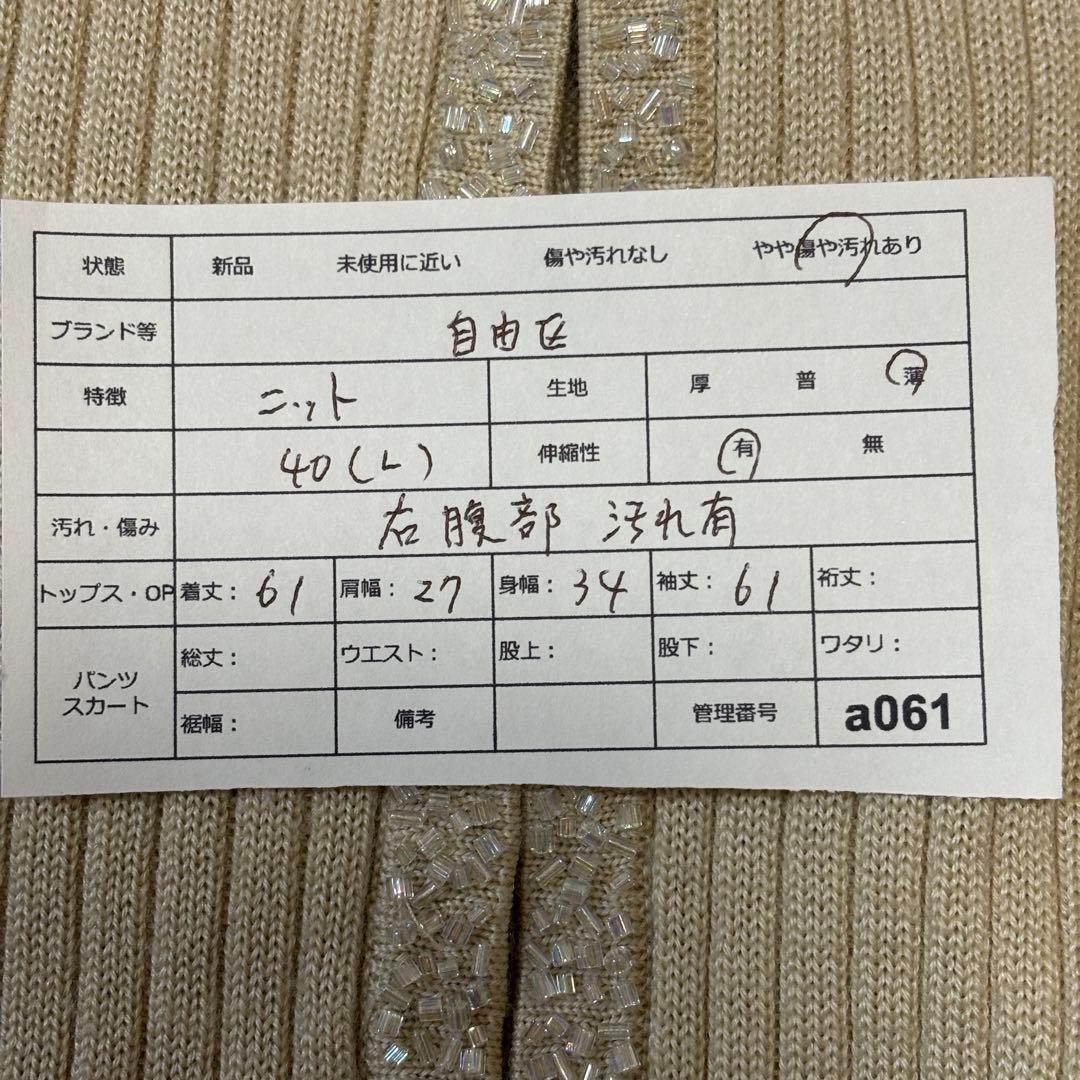 状態 新品 未使用に近い 傷や汚れなし やや傷や汚れあり
ブランド等 自由区
特徴 ニット 生地 厚 普 薄
40(L) 伸縮性 有 無
汚れ・傷み 右腹部 汚れ有
トップス・OP 着丈: 61 肩幅: 27 身幅: 34 袖丈: 61 裄丈:
パンツ スカート 総丈: ウエスト: 股上: 股下: ワタリ:
裾幅: 備考 管理番号 a061